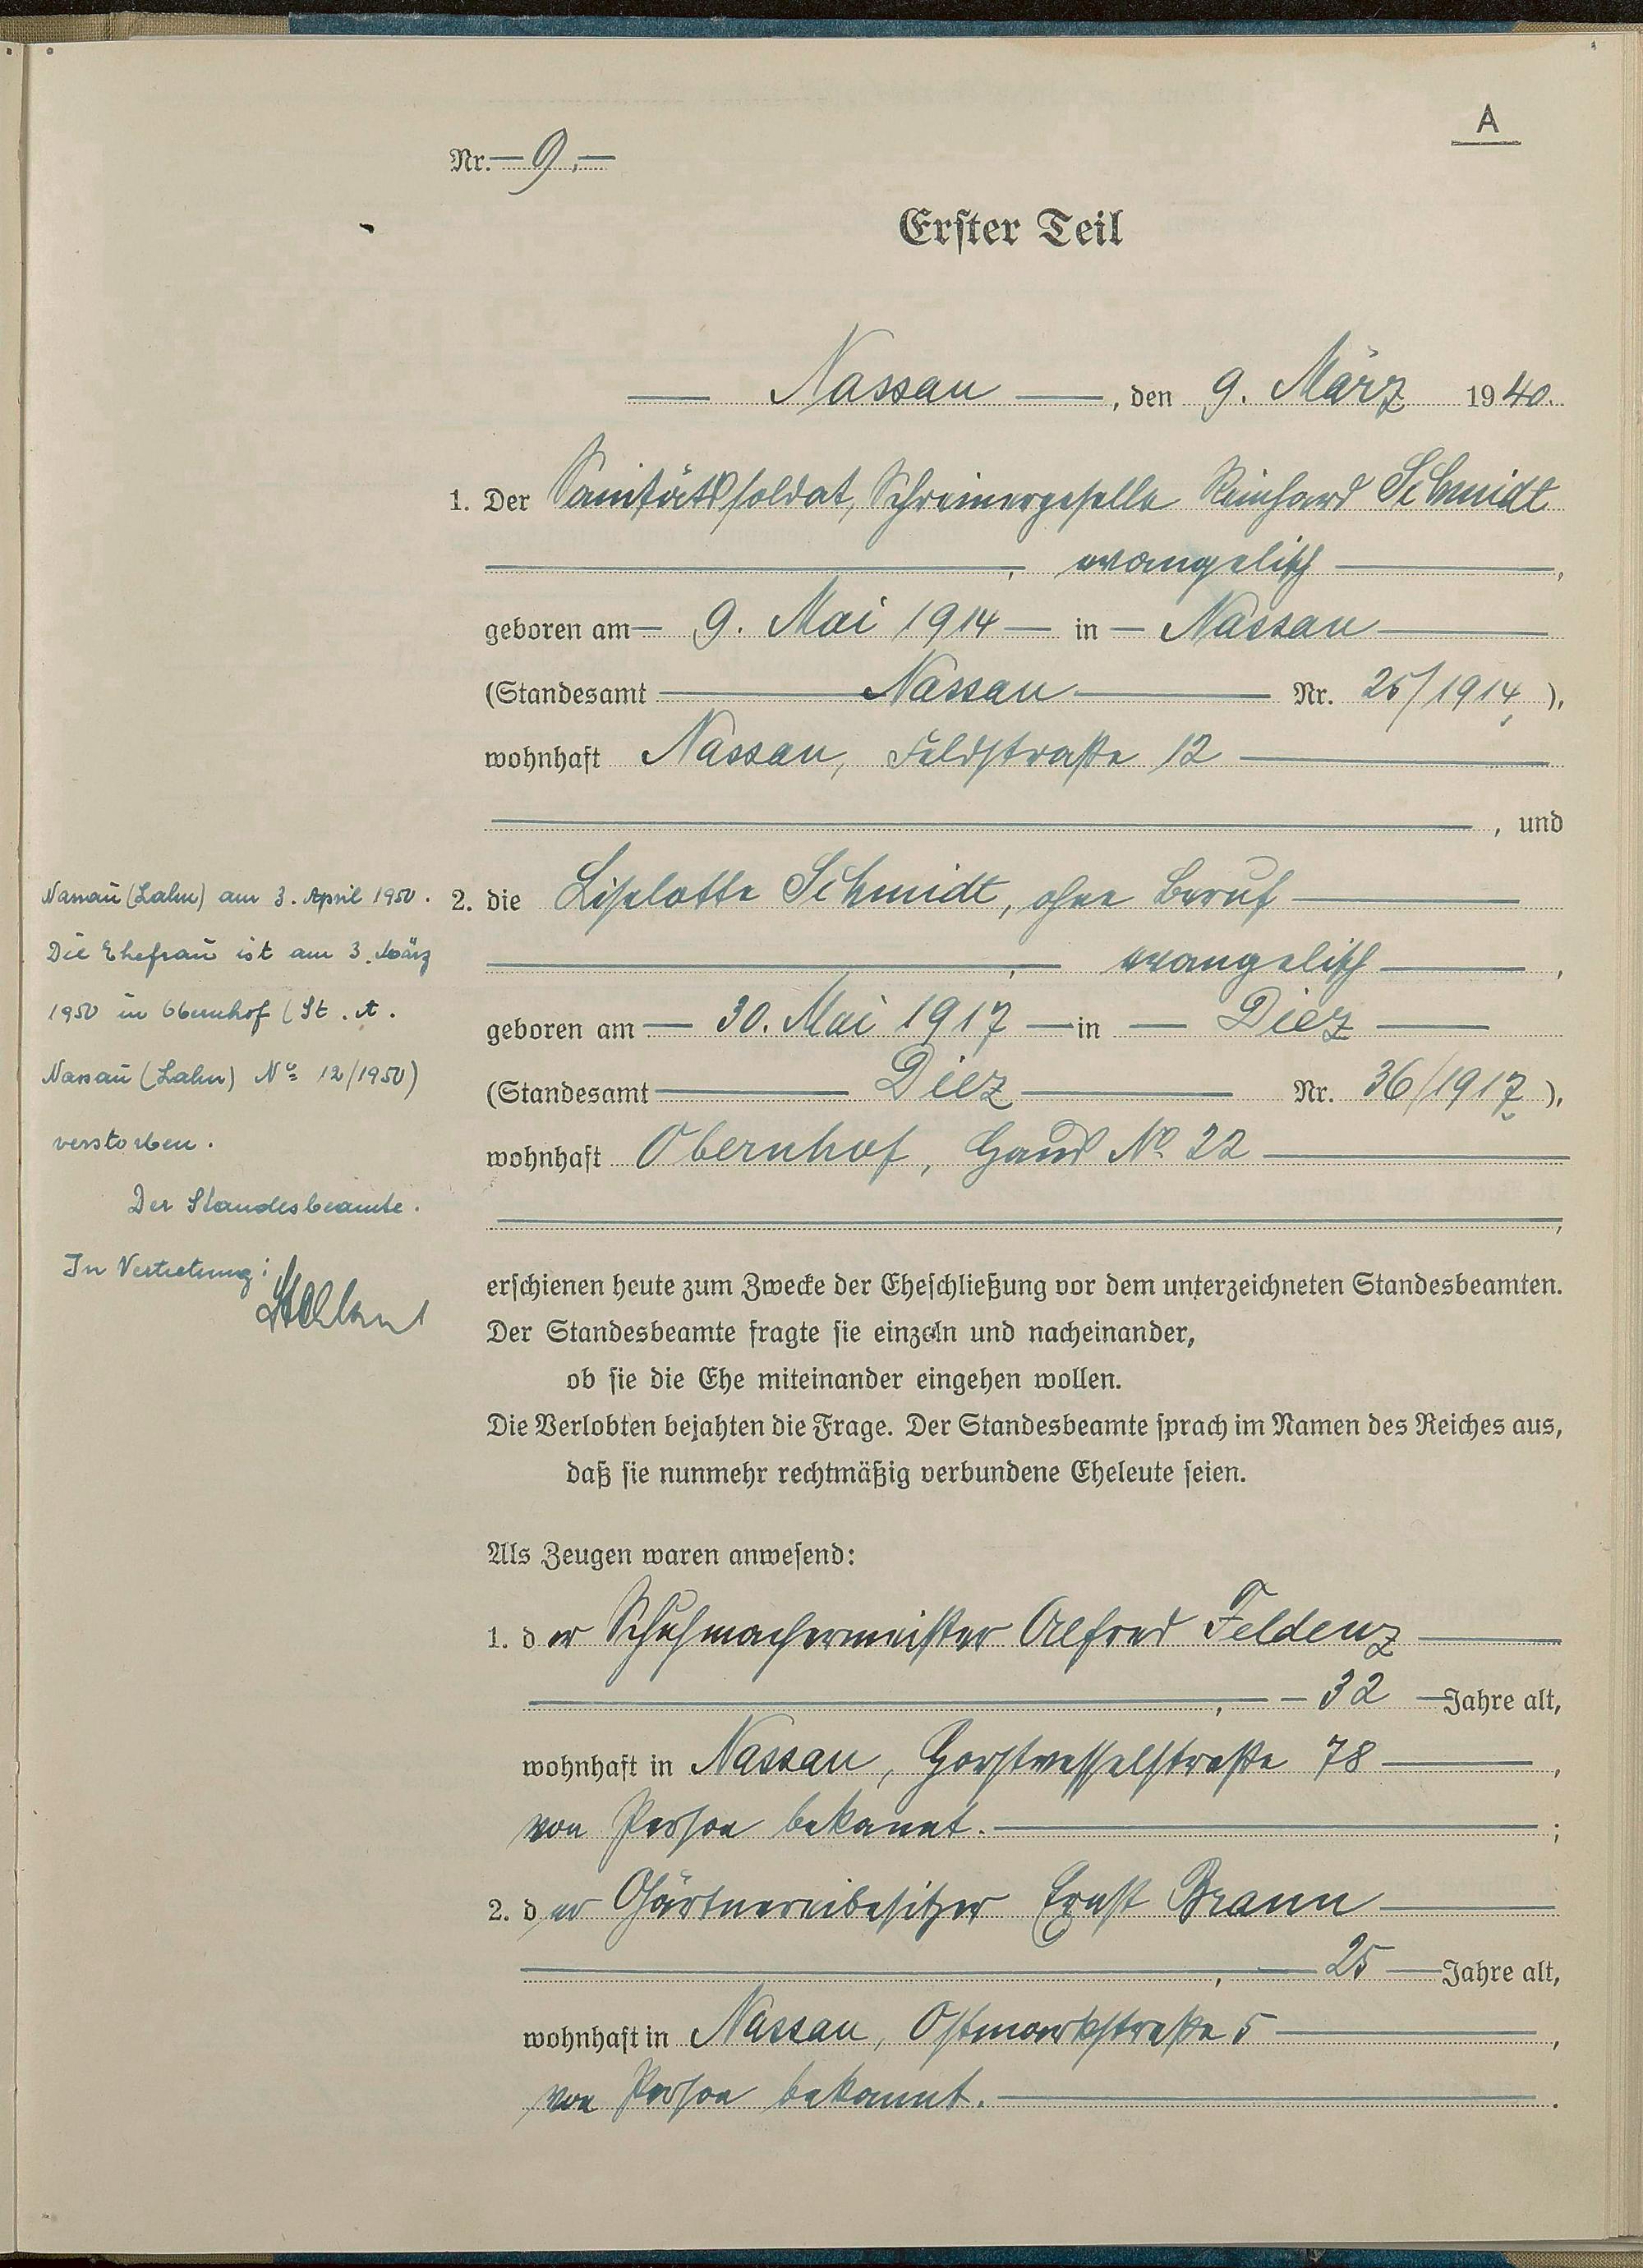 A
Nr. — 9. —
Erster Teil
Nassau, den 9. März 1940.
1. Der Sanitätssoldat, Schreinergeselle Reinhard Schmidt
, evangelisch,
geboren am 9. Mai 1914 in Nassau
(Standesamt Nassau Nr. 25/1914),
wohnhaft Nassau, Feldstraße 12
, und
2. die Liselotte Schmidt, ohne Beruf
, evangelisch,
geboren am 30. Mai 1917 in Diez
(Standesamt Diez Nr. 36/1917),
wohnhaft Obernhof, Haus No 22
,
erschienen heute zum Zwecke der Eheschließung vor dem unterzeichneten Standesbeamten.
Der Standesbeamte fragte sie einzeln und nacheinander,
ob sie die Ehe miteinander eingehen wollen.
Die Verlobten bejahten die Frage. Der Standesbeamte sprach im Namen des Reiches aus,
daß sie nunmehr rechtmäßig verbundene Eheleute seien.
Als Zeugen waren anwesend:
1. der Schuhmachermeister Alfred Feldenz
, 32 Jahre alt,
wohnhaft in Nassau, Horstwesselstraße 78,
von Person bekannt.;
2. der Gärtnereibesitzer Ernst Braun
, 25 Jahre alt,
wohnhaft in Nassau, Ostmarkstraße 5,
von Person bekannt.
Nassau (Lahn) am 3. April 1950.
Die Ehefrau ist am 3. März
1950 in Obernhof (St. A.
Nassau (Lahn) No 12/1950)
verstorben.
Der Standesbeamte.
In Vertretung: